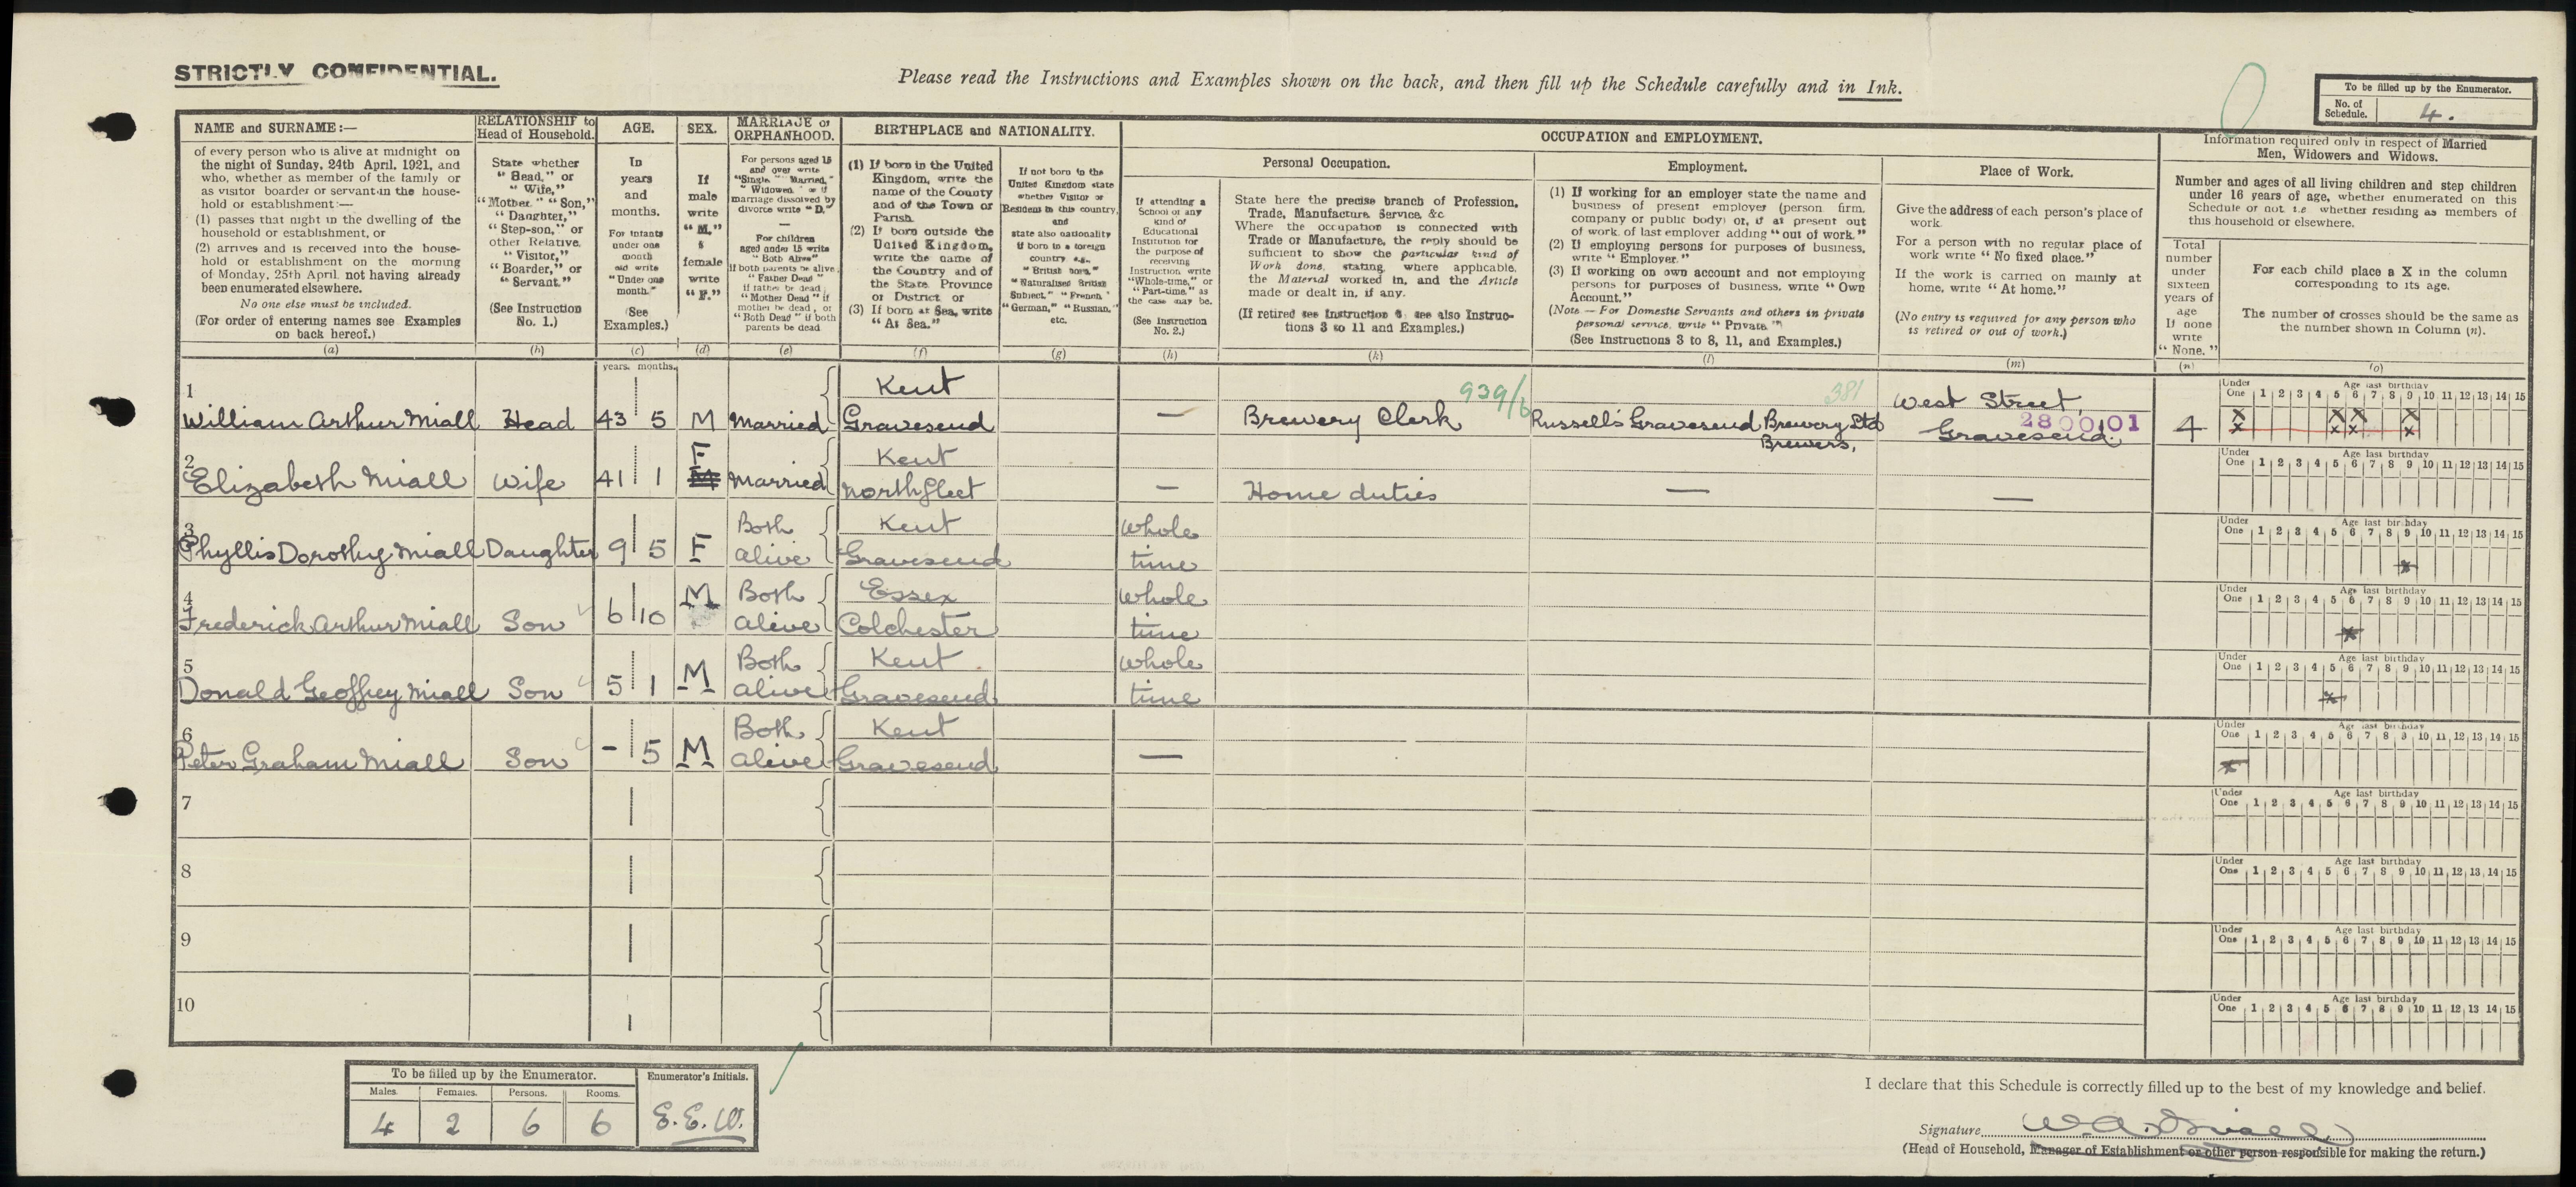 STRICTLY CONFIDENTIAL.
Please read the Instructions and Examples shown on the back, and then fill up the Schedule carefully and in Ink.
To be filled up by the Enumerator.
No. of Schedule. 4.
NAME and SURNAME:—
of every person who is alive at midnight on
the night of Sunday, 24th April, 1921, and
who, whether as member of the family or
as visitor boarder or servant in the house-
hold or establishment:—
(1) passes that night in the dwelling of the
household or establishment, or
(2) arrives and is received into the house-
hold or establishment on the morning
of Monday, 25th April, not having already
been enumerated elsewhere.
No one else must be included.
(For order of entering names see Examples
on back hereof.)
(a)
RELATIONSHIP to
Head of Household.
State whether
"Head," or
"Wife,"
"Mother," "Son,"
"Daughter,"
"Step-son," or
other Relative,
"Visitor,"
"Boarder," or
"Servant."
(See Instruction
No. 1.)
(b)
AGE.
In
years
and
months.
For infants
under one
month
old write
"Under one
month."
(See
Examples.)
(c)
SEX.
If
male
write
"M."
female
write
"F."
(d)
MARRIAGE or
ORPHANHOOD.
For persons aged 15
and over write
"Single," "Married,"
"Widowed," or if
marriage dissolved by
divorce write "D."
For children
aged under 15 write
"Both Alive"
if both parents be alive,
if father be dead
"Father Dead"
"Mother Dead" if
mother be dead, or
"Both Dead" if both
parents be dead
(e)
BIRTHPLACE and NATIONALITY.
(1) If born in the United
Kingdom, write the
name of the County
and of the Town or
Parish.
(2) If born outside the
United Kingdom,
write the name of
the Country and of
the State, Province
or District, or
(3) If born at Sea, write
"At Sea."
(f)
If not born in the
United Kingdom state
whether Visitor or
Resident in this country,
and
state also nationality
if born in a foreign
country e.g.,
"British born,"
"Naturalised British
Subject," "French,"
"German," "Russian,"
etc.
(g)
OCCUPATION and EMPLOYMENT.
If attending a
School or any
kind of
Educational
Institution for
the purpose of
receiving
Instruction write
"Whole-time," or
"Part-time," as
the case may be.
(See Instruction
No. 2.)
(h)
Personal Occupation.
State here the precise branch of Profession,
Trade, Manufacture, Service, &c.
Where the occupation is connected with
Trade or Manufacture, the reply should be
sufficient to show the particular kind of
Work done, stating, where applicable,
the Material worked in, and the Article
made or dealt in, if any.
(If retired see Instruction 6; see also Instruc-
tions 3 to 11 and Examples.)
(k)
Employment.
(1) If working for an employer state the name and
business of present employer (person, firm,
company or public body) or, if at present out
of work, of last employer adding "out of work."
(2) If employing persons for purposes of business,
write "Employer."
(3) If working on own account and not employing
persons for purposes of business, write "Own
Account."
(Note — For Domestic Servants and others in private
personal service, write "Private.")
(See Instructions 3 to 8, 11, and Examples.)
(l)
Place of Work.
Give the address of each person's place of
work.
For a person with no regular place of
work write "No fixed place."
If the work is carried on mainly at
home, write "At home."
(No entry is required for any person who
is retired or out of work.)
(m)
Information required only in respect of Married
Men, Widowers and Widows.
Number and ages of all living children and step children
under 16 years of age, whether enumerated on this
Schedule or not i.e. whether residing as members of
this household or elsewhere.
Total
number
under
sixteen
years of
age
If none
write
"None."
(n)
For each child place a X in the column
corresponding to its age.
The number of crosses should be the same as
the number shown in Column (n).
(o)
years. months.
1 William Arthur Miall Head 43 5 M Married Kent Gravesend — Brewery Clerk 939/6 Russell's Gravesend Brewery Ltd Brewers, 381 West Street, Gravesend. 280001 4
Under One 1 2 3 4 5 6 7 8 9 10 11 12 13 14 15
Age last birthday
X X X X
x x x x
2 Elizabeth Miall Wife 41 1 F Married Kent Northfleet — Home duties — —
Under One 1 2 3 4 5 6 7 8 9 10 11 12 13 14 15
Age last birthday
3 Phyllis Dorothy Miall Daughter 9 5 F Both alive Kent Gravesend Whole time
Under One 1 2 3 4 5 6 7 8 9 10 11 12 13 14 15
Age last birthday
x
4 Frederick Arthur Miall Son 6 10 M Both alive Essex Colchester Whole time
Under One 1 2 3 4 5 6 7 8 9 10 11 12 13 14 15
Age last birthday
x
5 Donald Geoffrey Miall Son 5 1 M Both alive Kent Gravesend Whole time
Under One 1 2 3 4 5 6 7 8 9 10 11 12 13 14 15
Age last birthday
x
6 Peter Graham Miall Son - 5 M Both alive Kent Gravesend —
Under One 1 2 3 4 5 6 7 8 9 10 11 12 13 14 15
Age last birthday
x
7
Under One 1 2 3 4 5 6 7 8 9 10 11 12 13 14 15
Age last birthday
8
Under One 1 2 3 4 5 6 7 8 9 10 11 12 13 14 15
Age last birthday
9
Under One 1 2 3 4 5 6 7 8 9 10 11 12 13 14 15
Age last birthday
10
Under One 1 2 3 4 5 6 7 8 9 10 11 12 13 14 15
Age last birthday
To be filled up by the Enumerator.
Males. Females. Persons. Rooms.
4 2 6 6
Enumerator's Initials.
E.E.W.
I declare that this Schedule is correctly filled up to the best of my knowledge and belief.
Signature W.A. Miall
(Head of Household, Manager of Establishment or other person responsible for making the return.)